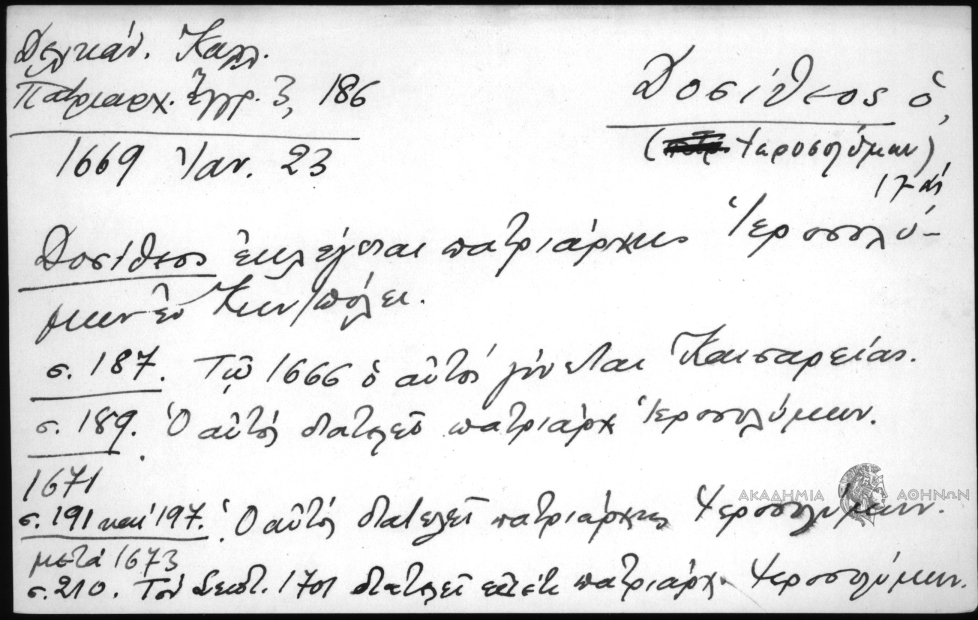 Δελικάν. Καλλ.
Πατριαρχ. Ἔγγρ. 3, 186
1669 Ἰαν. 23
Δοσίθεος ὁ,
(Ἱεροσολύμων)
17 αἰ
Δοσίθεος ἐκλέγεται πατριάρχης Ἱεροσολύ-
μων ἐν Κων/πόλει.
σ. 187. Τῷ 1666 ὁ αὐτός γίνεται Καισαρείας.
σ. 189. Ὁ αὐτός διατελεῖ πατριάρχ Ἱεροσολύμων.
1671
σ. 191 καί 197. Ὁ αὐτός διατελεῖ πατριάρχης Ἱεροσολύμων.
μετά 1673
σ. 210. Τόν Σεπτ. 1701 διατελεῖ εἰσέτι πατριάρχ. Ἱεροσολύμων.
ΑΚΑΔΗΜΙΑ ΑΘΗΝΩΝ